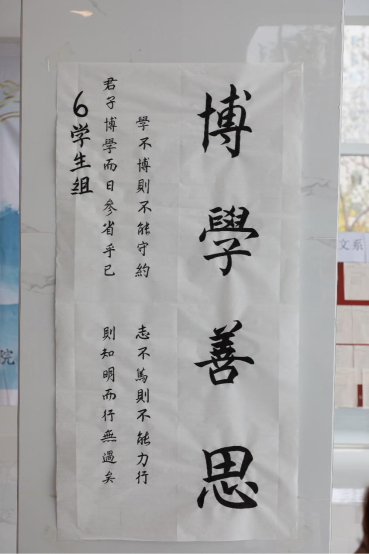 文系
博學善思
學不博則不能守約 志不篤則不能力行
君子博學而日參省乎己 則知明而行無過矣
6学生组
院